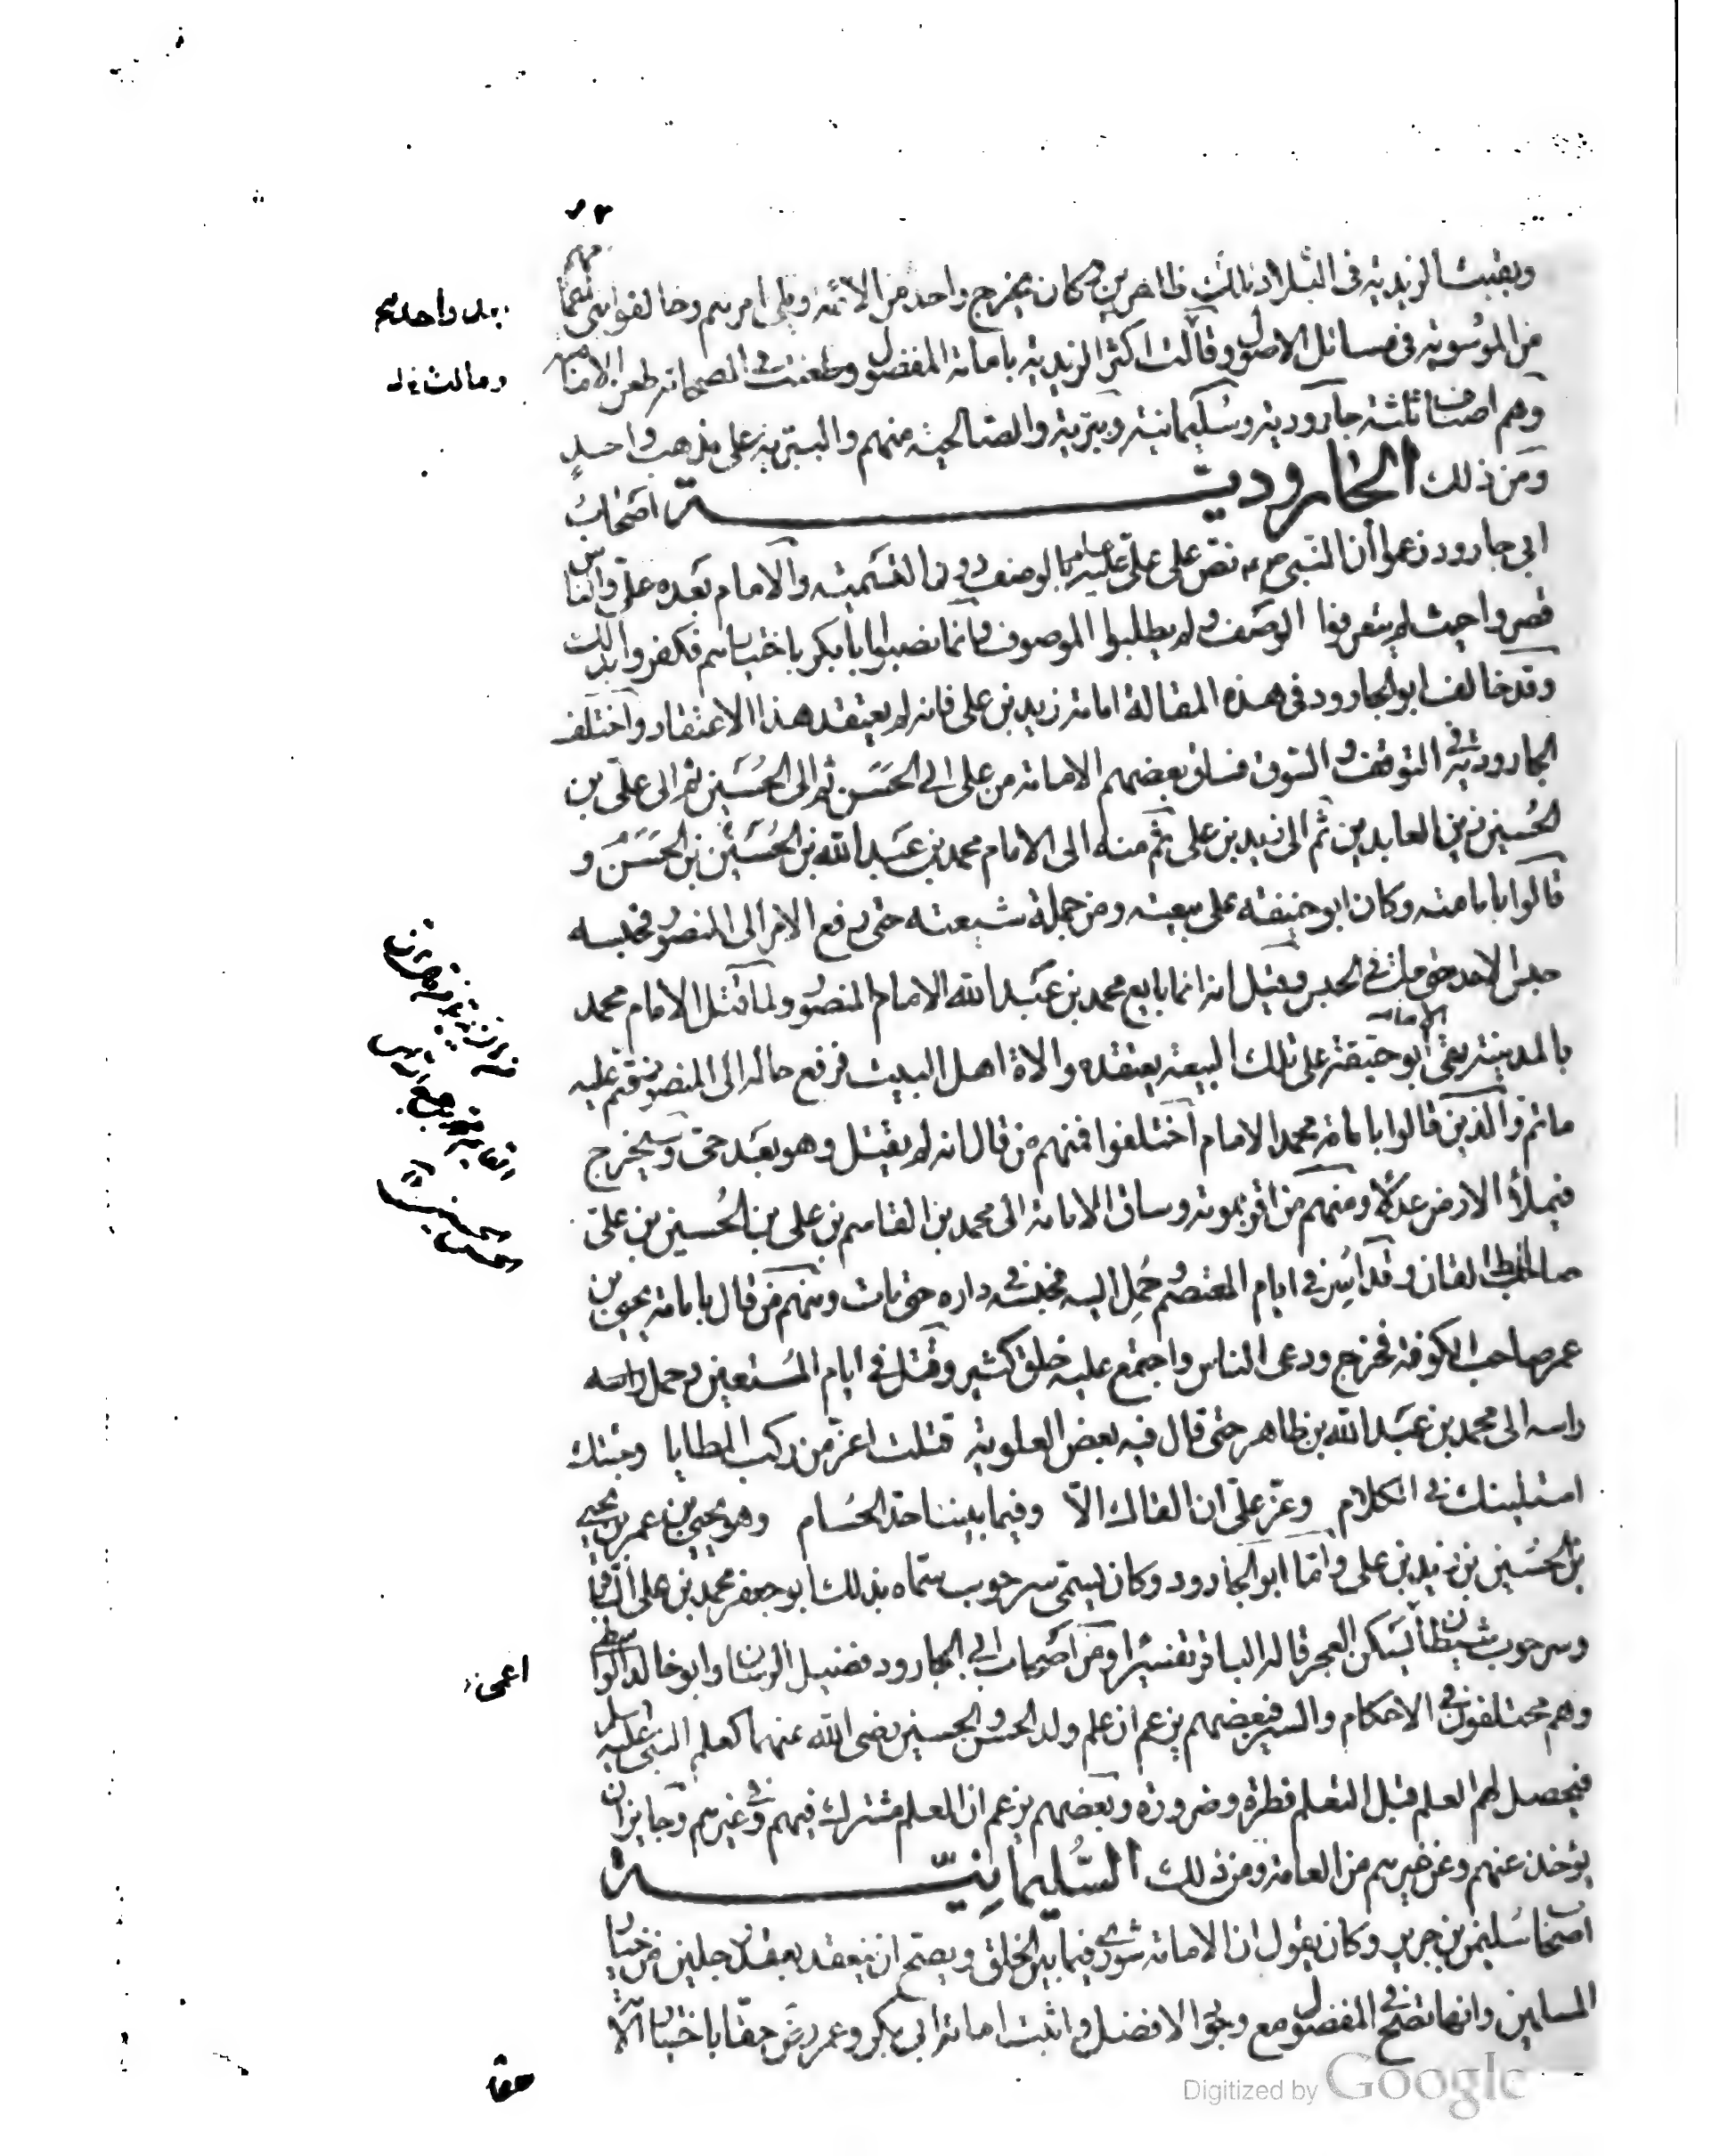 وبقيت الزيدية فى البلاد ظاهرين وكان يخرج واحد من الائمة ويلى امرهم وخالفوا بنى عمهم
من الموسوية فى مسائل الاصول وقالت اكثر الزيدية بامامة المفضول وطعنت فى الصحابة طعن الامامية
وهم اصناف ثلثة جارودية وسليمانية وبترية والصالحية منهم والبترية على مذهب واحد
ومن ذلك الجارودية اصحاب
ابى جارود زعموا أن النبى صم نص على على عليه السلام بالوصف دون التسمية والامام بعده على والناس
قصروا حيث لم يتعرفوا الوصف ولم يطلبوا الموصوف وانما نصبوا ابا بكر باختيارهم فكفروا بذلك
وقد خالف ابو الجارود فى هذه المقالة امامة زيد بن على فانه لم يعتقد هذا الاعتقاد واختلف
الجارودية فى التوقف والسوق فساق بعضهم الامامة من على الى الحسن ثم الى الحسين ثم الى على بن
الحسين زين العابدين ثم الى زيد بن على ثم منه الى الامام محمد بن عبد الله بن الحسين بن الحسن و
قالوا بامامته وكان ابو حنيفة على بيعته ومن جملة شيعته حتى رفع الامر الى المنصور فحبسه
حبس الابد حتى مات فى الحبس وقيل انه انما بايع محمد بن عبد الله الامام المنصور ولما قتل الامام محمد
بالمدينة بقى الامام ابو حنيفة على تلك البيعة يعتقد موالاة اهل البيت فرفع حاله الى المنصور فتم عليه
ما تم والذين قالوا بامامة محمد الامام اختلفوا فمنهم من قال انه لم يقتل وهو بعد حى وسيخرج
فيملأ الارض عدلا ومنهم من اقر بموته وساق الامامة الى محمد بن القاسم بن على بن الحسين بن على
صاحب الطالقان وقد اسر فى ايام المعتصم وحمل اليه فحبسه فى داره حتى مات ومنهم من قال بامامة يحيى بن
عمر صاحب الكوفة فخرج ودعى الناس واجتمع عليه خلق كثير وقتل فى ايام المستعين وحمل راسه
راسه الى محمد بن عبد الله بن ظاهر حتى قال فيه بعض العلوية قتلت اعز من ركب المطايا وجئتك
استلينك فى الكلام وعز على ان القاك الا وفيما بيننا حد الحسام وهو يحيى بن عمر بن يحيى
بن الحسين بن زيد بن على واما ابو الجارود وكان يسمى سرحوب سماه بذلك ابو جعفر محمد بن على الباقر
وسرحوب شيطان يسكن البحر قاله الباقر تفسيرا ومن اصحاب ابى الجارود فضيل الرسان وابو خالد الواسطى
وهم مختلفون فى الاحكام والسير فبعضهم يزعم ان علم ولد الحسن والحسين رضى الله عنهما كعلم النبى عليه السلام
فيحصل لهم العلم قبل التعلم فطرة وضرورة وبعضهم يزعم ان العلم مشترك فيهم وفى غيرهم وجايز ان
يؤخذ عنهم وعن غيرهم من العامة ومن ذلك السليمانية
اصحاب سليمن بن جرير وكان يقول ان الامامة شورى فيما بين الخلق ويصح ان ينعقد بعقد رجلين من خيار
المسلمين وانها تصح فى المفضول مع وجود الافضل واثبت امامة ابى بكر وعمر رض حقا باختيار الامة
اعمى
حقا
Digitized by Google